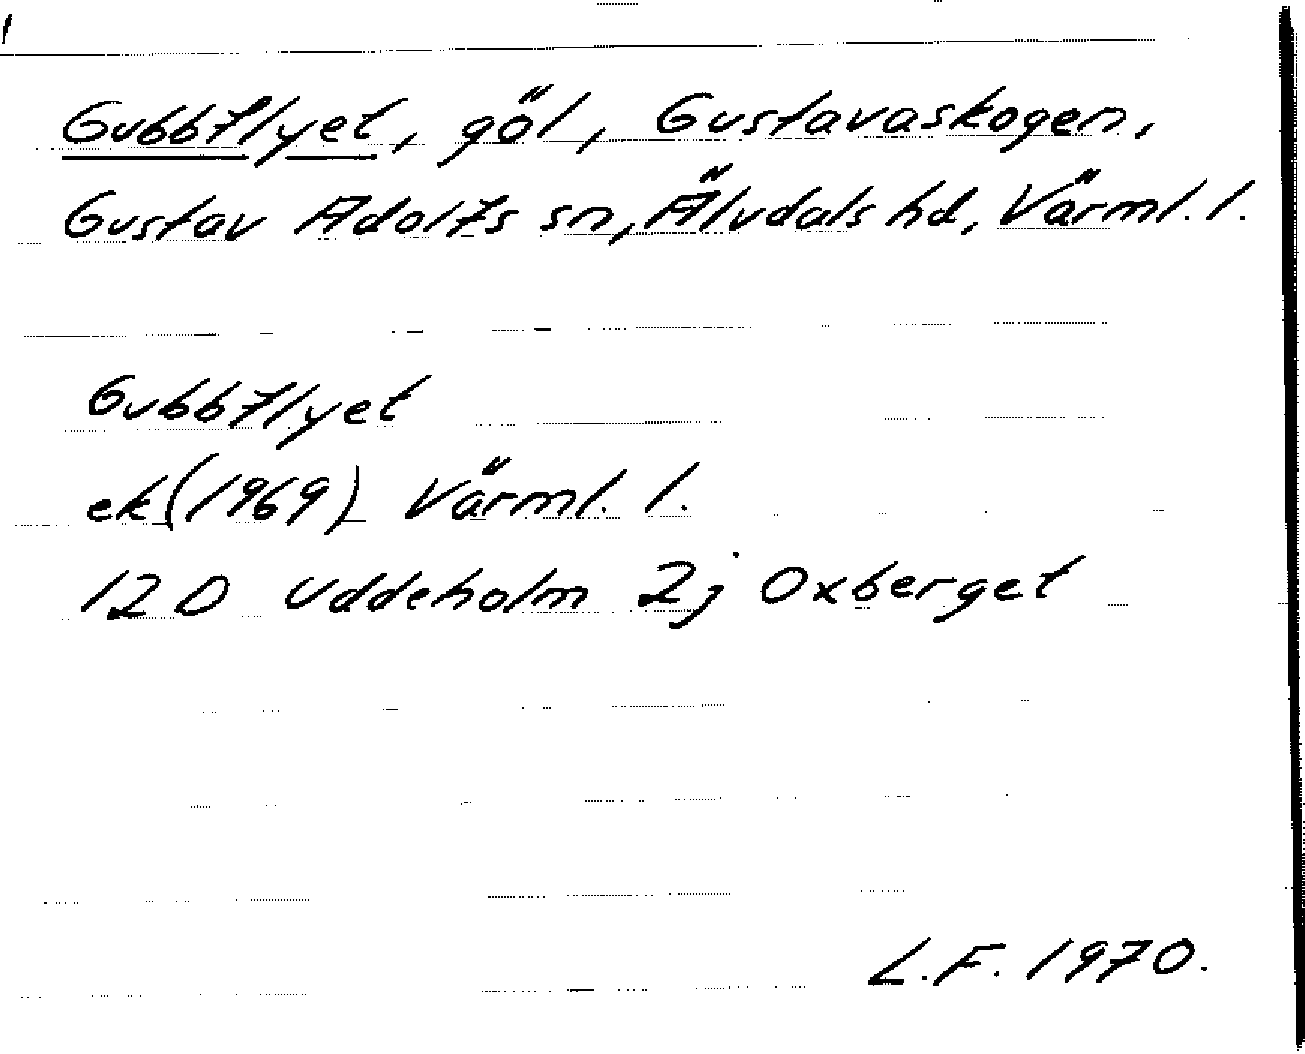 Gubbflyet, göl, Gustavaskogen,
Gustav Adolfs sn, Älvdals hd, Värml. l.
Gubbflyet
ek (1969) Värml. l.
12 D Uddeholm 2j Oxberget
L.F. 1970.